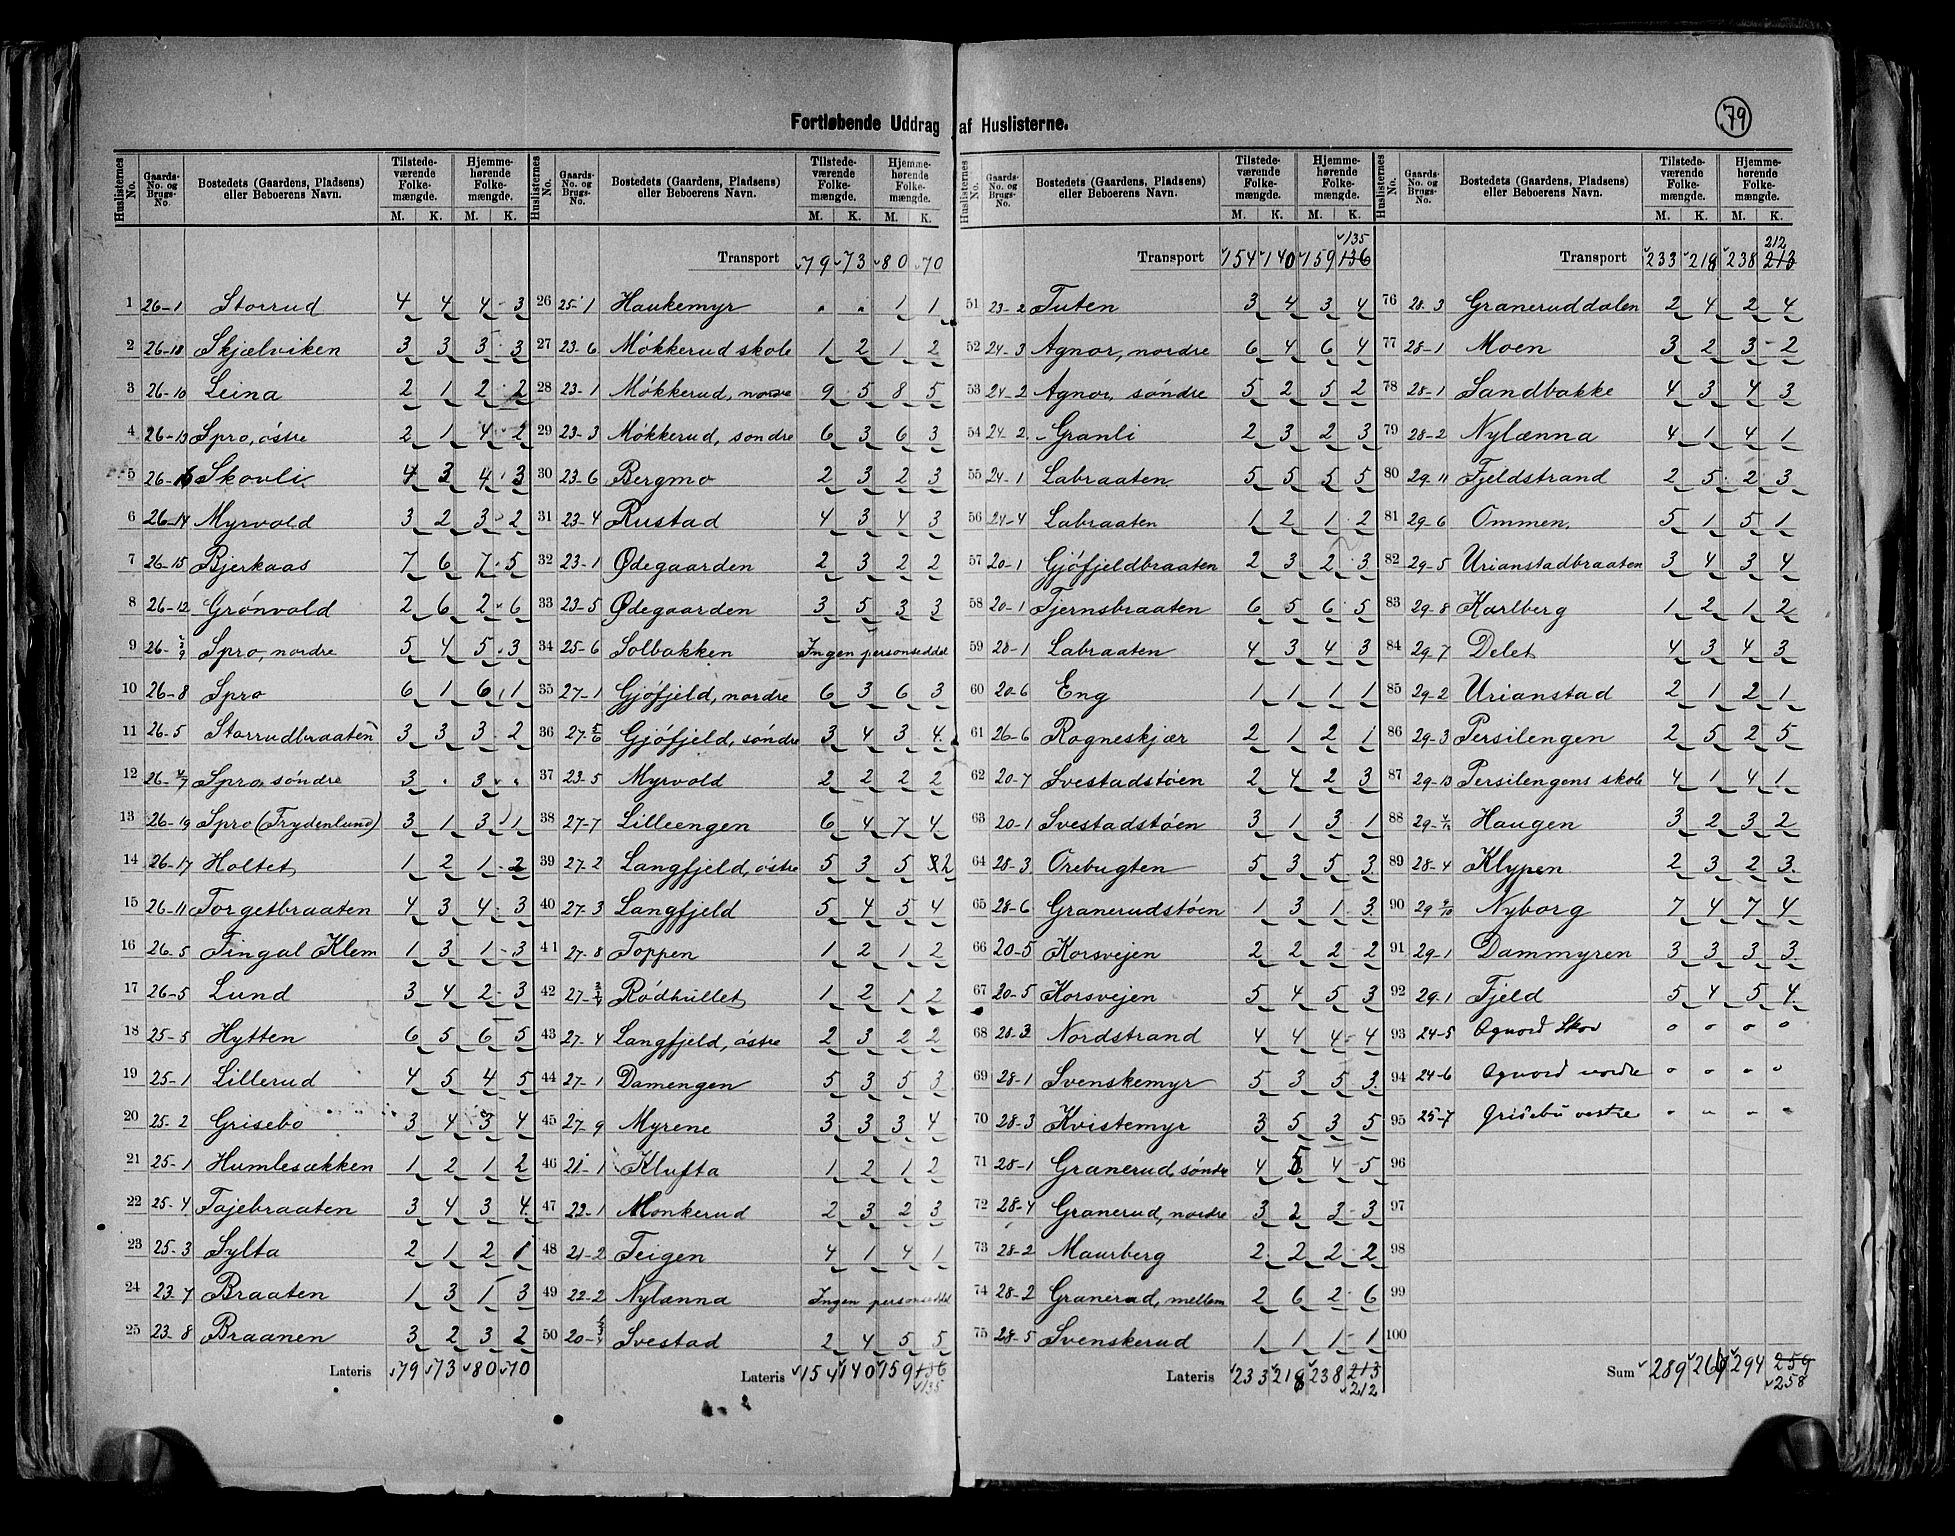 79
Fortløbende Uddrag af Huslisterne.
Huslisternes No. Gaards-No. og Brugs-No. Bostedets (Gaardens, Pladsens) eller Beboerens Navn. Tilstedeværende Folkemængde. M. K. Hjemmehørende Folkemængde. M. K.
1 26-1 Storrud 4 4 4 3
2 26-18 Skjælviken 3 3 3 3
3 26-10 Leina 2 1 2 2
4 26-13 Spro, østre 2 1 4 2
5 26-16 Skovli 4 3 4 3
6 26-14 Myrvold 3 2 3 2
7 26-15 Bjerkaas 7 6 7 5
8 26-12 Grønvold 2 6 2 6
9 26- Spro, nordre 5 4 5 3
10 26-8 Spro 6 1 6 1
11 26-5 Storrudbraaten 3 3 3 2
12 26- Spro, søndre 3 . 3 .
13 26-19 Spro (Frydenlund) 3 1 3 1
14 26-17 Holtet 1 2 1 2
15 26-11 Torgetbraaten 4 3 4 3
16 26-5 Fingal Klem 1 3 1 3
17 26-5 Lund 3 4 2 3
18 25-5 Hytten 6 5 6 5
19 25-1 Lillerud 4 5 4 5
20 25-2 Grisebo 3 4 3 4
21 25-1 Humlesækken 1 2 1 2
22 25-4 Tajebraaten 3 4 3 4
23 25-3 Sylta 2 1 2 1
24 23-7 Braaten 1 3 1 3
25 23-8 Braanen 3 2 3 2
Lateris 79 73 80 70
Huslisternes No. Gaards-No. og Brugs-No. Bostedets (Gaardens, Pladsens) eller Beboerens Navn. Tilstedeværende Folkemængde. M. K. Hjemmehørende Folkemængde. M. K.
Transport 79 73 80 70
26 25-1 Haukemyr . . 1 1
27 23-6 Møkkerud skole 1 2 1 2
28 23-1 Møkkerud, nordre 9 5 8 5
29 23-3 Møkkerud, søndre 6 3 6 3
30 23-6 Bergmo 2 3 2 3
31 23-4 Rustad 4 3 4 3
32 23-1 Ødegaarden 2 3 2 2
33 23-5 Ødegaarden 3 5 3 3
34 25-6 Solbakken Ingen personseddel
35 27-1 Gjøfjeld, nordre 6 3 6 3
36 27-5/6 Gjøfjeld, søndre 3 4 3 4
37 23-5 Myrvold 2 2 2 2
38 27-7 Lilleengen 6 4 7 4
39 27-2 Langfjeld, østre 5 3 5 2
40 27-3 Langfjeld 5 4 5 4
41 27-8 Toppen 1 2 1 2
42 27- Rødhullet 1 2 1 2
43 27-4 Langfjeld, østre 2 3 2 2
44 27-1 Damengen 5 3 5 3
45 27-9 Myrene 3 3 3 4
46 21-1 Klufta 1 2 1 2
47 22-1 Monkerud 2 3 2 3
48 21-2 Teigen 4 1 4 1
49 22-2 Nylænna Ingen personseddel
50 20- Svestad 2 4 5 5
Lateris 154 140 159 136
135
Huslisternes No. Gaards-No. og Brugs-No. Bostedets (Gaardens, Pladsens) eller Beboerens Navn. Tilstedeværende Folkemængde. M. K. Hjemmehørende Folkemængde. M. K.
135
Transport 154 140 159 136
51 23-2 Tuten 3 4 3 4
52 24-3 Agnor, nordre 6 4 6 4
53 24-2 Agnor, søndre 5 2 5 2
54 24-2 Granli 2 3 2 3
55 24-1 Labraaten 5 5 5 5
56 24-4 Labraaten 1 2 1 2
57 20-1 Gjøfjeldbraaten 2 3 2 3
58 20-1 Tjernsbraaten 6 5 6 5
59 28-1 Labraaten 4 3 4 3
60 20-6 Eng 1 1 1 1
61 26-6 Rogneskjær 2 1 2 1
62 20-7 Svestadstøen 2 4 2 3
63 20-1 Svestadstøen 3 1 3 1
64 28-3 Orebugten 5 3 5 3
65 28-6 Granerudstøen 1 3 1 3
66 20-5 Korsvejen 2 2 2 2
67 20-5 Korsvejen 5 4 5 3
68 28-3 Nordstrand 4 4 4 4
69 28-1 Svenskemyr 5 3 5 3
70 28-3 Kvistemyr 3 5 3 5
71 28-1 Granerud, søndre 4 5 4 5
72 28-4 Granerud, nordre 3 2 3 3
73 28-2 Maurberg 2 2 2 2
74 28-2 Granerud, mellem 2 6 2 6
75 28-5 Svenskerud 1 1 1 1
Lateris 233 218 238 213
212
Huslisternes No. Gaards-No. og Brugs-No. Bostedets (Gaardens, Pladsens) eller Beboerens Navn. Tilstedeværende Folkemængde. M. K. Hjemmehørende Folkemængde. M. K.
212
Transport 233 218 238 213
76 28-3 Graneruddalen 2 4 2 4
77 28-1 Moen 3 2 3 2
78 28-1 Sandbakke 4 3 4 3
79 28-2 Nylænna 4 1 4 1
80 29-11 Fjeldstrand 2 5 2 3
81 29-6 Ommen, 5 1 5 1
82 29-5 Urianstadbraaten 3 4 3 4
83 29-8 Karlberg 1 2 1 2
84 29-7 Delet 4 3 4 3
85 29-2 Urianstad 2 1 2 1
86 29-3 Persilengen 2 5 2 5
87 29-13 Persilengens skole 4 1 4 1
88 29- Haugen 3 2 3 2
89 28-4 Klypen 2 3 2 3
90 29-9/10 Nyborg 7 4 7 4
91 29-1 Dammyren 3 3 3 3
92 29-1 Fjeld 5 4 5 4
93 24-5 Agnord Skov 0 0 0 0
94 24-6 Agnord nordre 0 0 0 0
95 25-7 Grisebu vestre " " " "
96
97
98
99
100
Sum 289 266 294 259
258